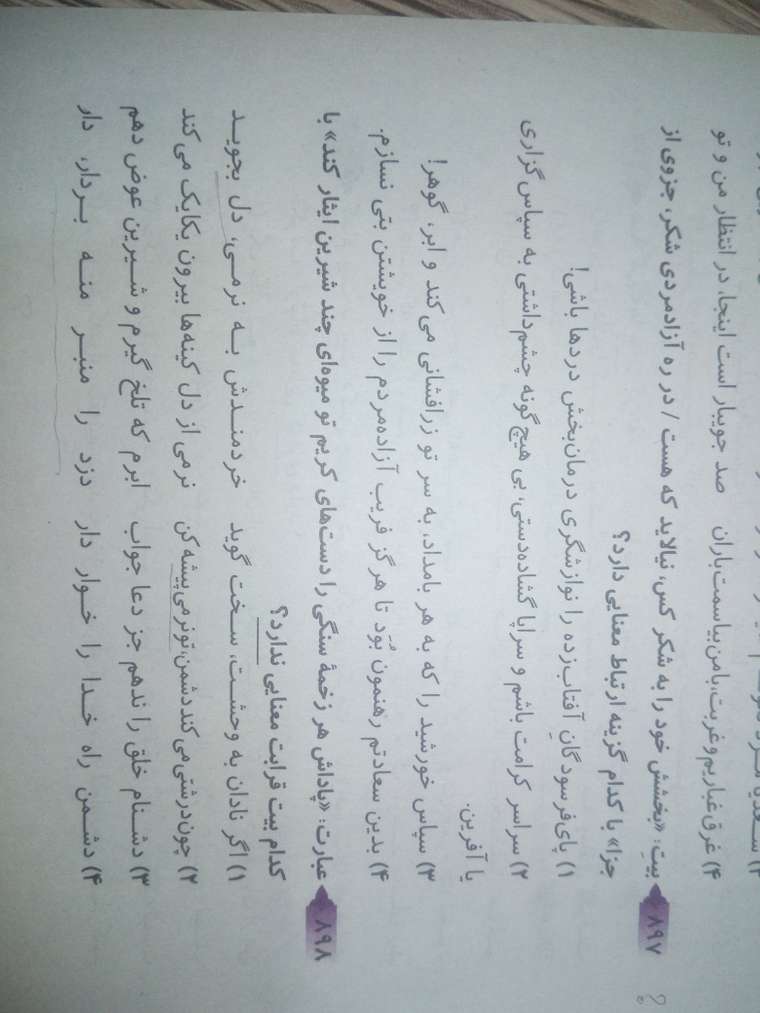 ۴) غرق غباریم و غربت، با من بیا سمت باران صد جویبار است اینجا، در انتظار من و تو
۸۹۷ بیتِ: «بخشش خود را به شکر کس، نیالاید که هست / در ره آزادمردی شکر، جزوی از
جزا» با کدام گزینه ارتباط معنایی دارد؟
۱) پای‌فرسودگانِ آفتاب‌زده را نوازشگری درمان‌بخش دردها باشی!
۲) سراسر کرامت باشم و سراپا گشاده‌دستی، بی هیچ گونه چشم‌داشتی به سپاس گزاری
یا آفرین.
۳) سپاس خورشید را که به هر بامداد، به سر تو زرافشانی می‌کند و ابر، گوهر!
۴) بدین سعادتم رهنمون بُوَد تا هرگز فریب آزاده‌مردم را از خویشتن بتی نسازم.
۸۹۸ عبارت: «پاداش هر زخمهٔ سنگی را دست‌های کریم تو میوه‌ای چند شیرین ایثار کند» با
کدام بیت قرابت معنایی ندارد؟
۱) اگر نادان به وحشت، سخت گوید خردمندش به نرمی، دل بجوید
۲) چون درشتی می‌کند دشمن، تو نرمی پیشه کن نرمی از دل کینه‌ها بیرون یکایک می‌کند
۳) دشنام خلق را ندهم جز دعا جواب ابرم که تلخ گیرم و شیرین عوض دهم
۴) دشمن راه خدا را خوار دار دزد را منبر منه بردار، دار